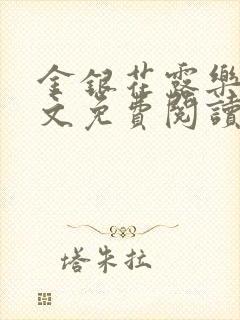 金銀花露樂
文免費閱讀
塔朱拉